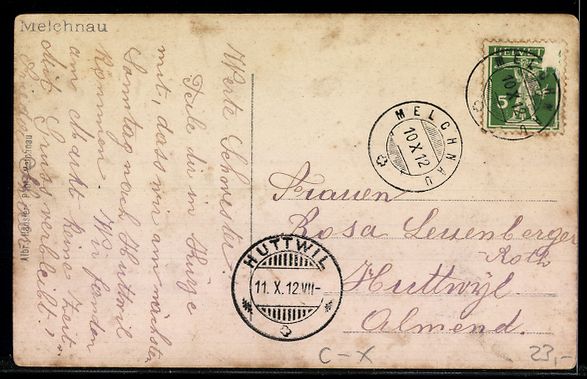 Melchnau
Werte Schwester!
Teile dir in Kürze
mit, dass wir am nächsten
Sonntag nach Huttwil
kommen. Wir fanden
am Markt keine Zeit.
Mit Gruss verbleibt
HELVETIA
5
MELCHNAU
10 X 12
MELCHNAU
10 X 12
Frauen
Rosa Leuenberger
Roth
Huttwyl
Almend.
HUTTWIL
11. X. 12 VII-
C-X
23,-